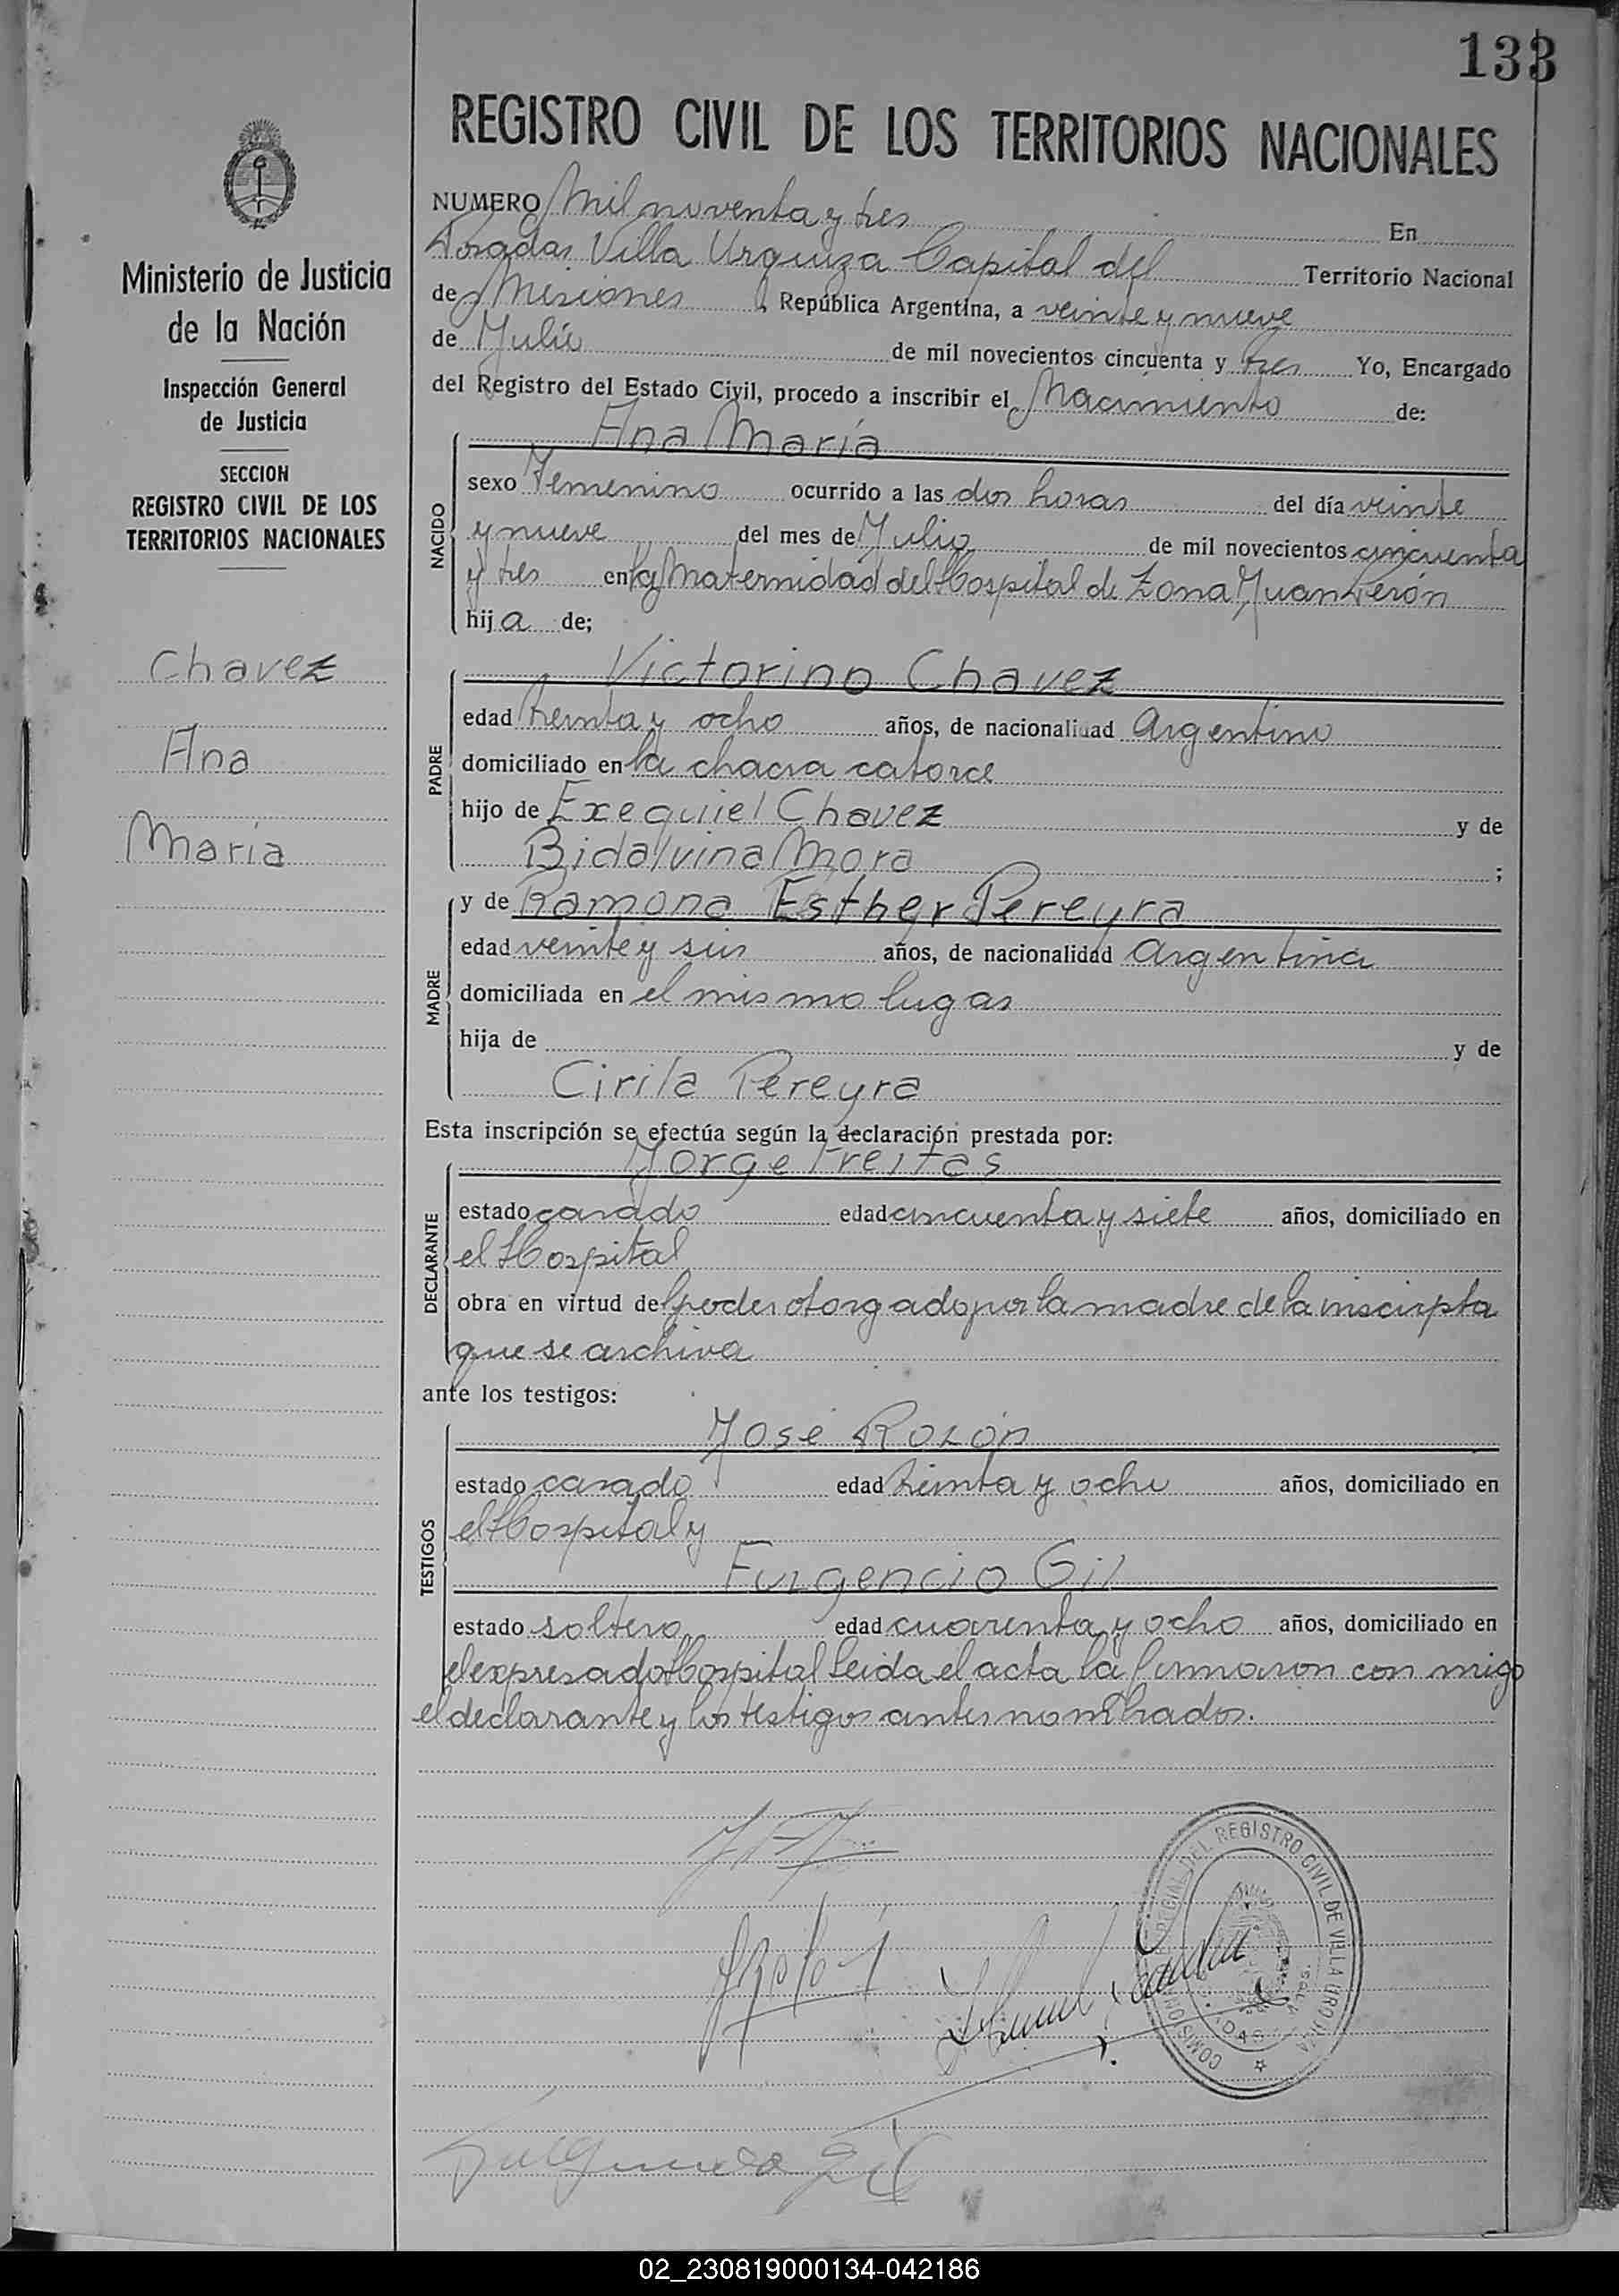 133
REGISTRO CIVIL DE LOS TERRITORIOS NACIONALES
Ministerio de Justicia
de la Nación
Inspección General
de Justicia
SECCION
REGISTRO CIVIL DE LOS
TERRITORIOS NACIONALES
Chavez
Ana
María
NUMERO Mil noventa y tres En
Posadas Villa Urquiza Capital del Territorio Nacional
de Misiones, República Argentina, a veinte y nueve
de Julio de mil novecientos cincuenta y tres Yo, Encargado
del Registro del Estado Civil, procedo a inscribir el Nacimiento de:
NACIDO
Ana María
sexo Femenino ocurrido a las dos horas del día veinte
y nueve del mes de Julio de mil novecientos cincuenta
y tres en la Maternidad del Hospital de Zona Juan Perón
hija de;
PADRE
Victorino Chavez
edad treinta y ocho años, de nacionalidad Argentino
domiciliado en la chacra catorce
hijo de Exequiel Chavez y de
Bidalvina Mora ;
MADRE
y de Ramona Esther Pereyra
edad veinte y seis años, de nacionalidad Argentina
domiciliada en el mismo lugar
hija de y de
Cirila Pereyra
Esta inscripción se efectúa según la declaración prestada por:
DECLARANTE
Jorge Freitas
estado casado edad cincuenta y siete años, domiciliado en
el Hospital
obra en virtud del poder otorgado por la madre de la inscripta
que se archiva
ante los testigos:
TESTIGOS
José Rolón
estado casado edad treinta y ocho años, domiciliado en
el Hospital y
Fulgencio Gil
estado soltero edad cuarenta y ocho años, domiciliado en
el expresado Hospital Leida el acta la firmaron con migo
el declarante y los testigos antes nombrados.
JRolón
DEL REGISTRO CIVIL DE VILLA URQUIZA
Fulgencio Gil
02_230819000134-042186